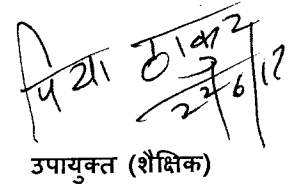 पिया ठाकुर
22/6/17
उपायुक्त (शैक्षिक)